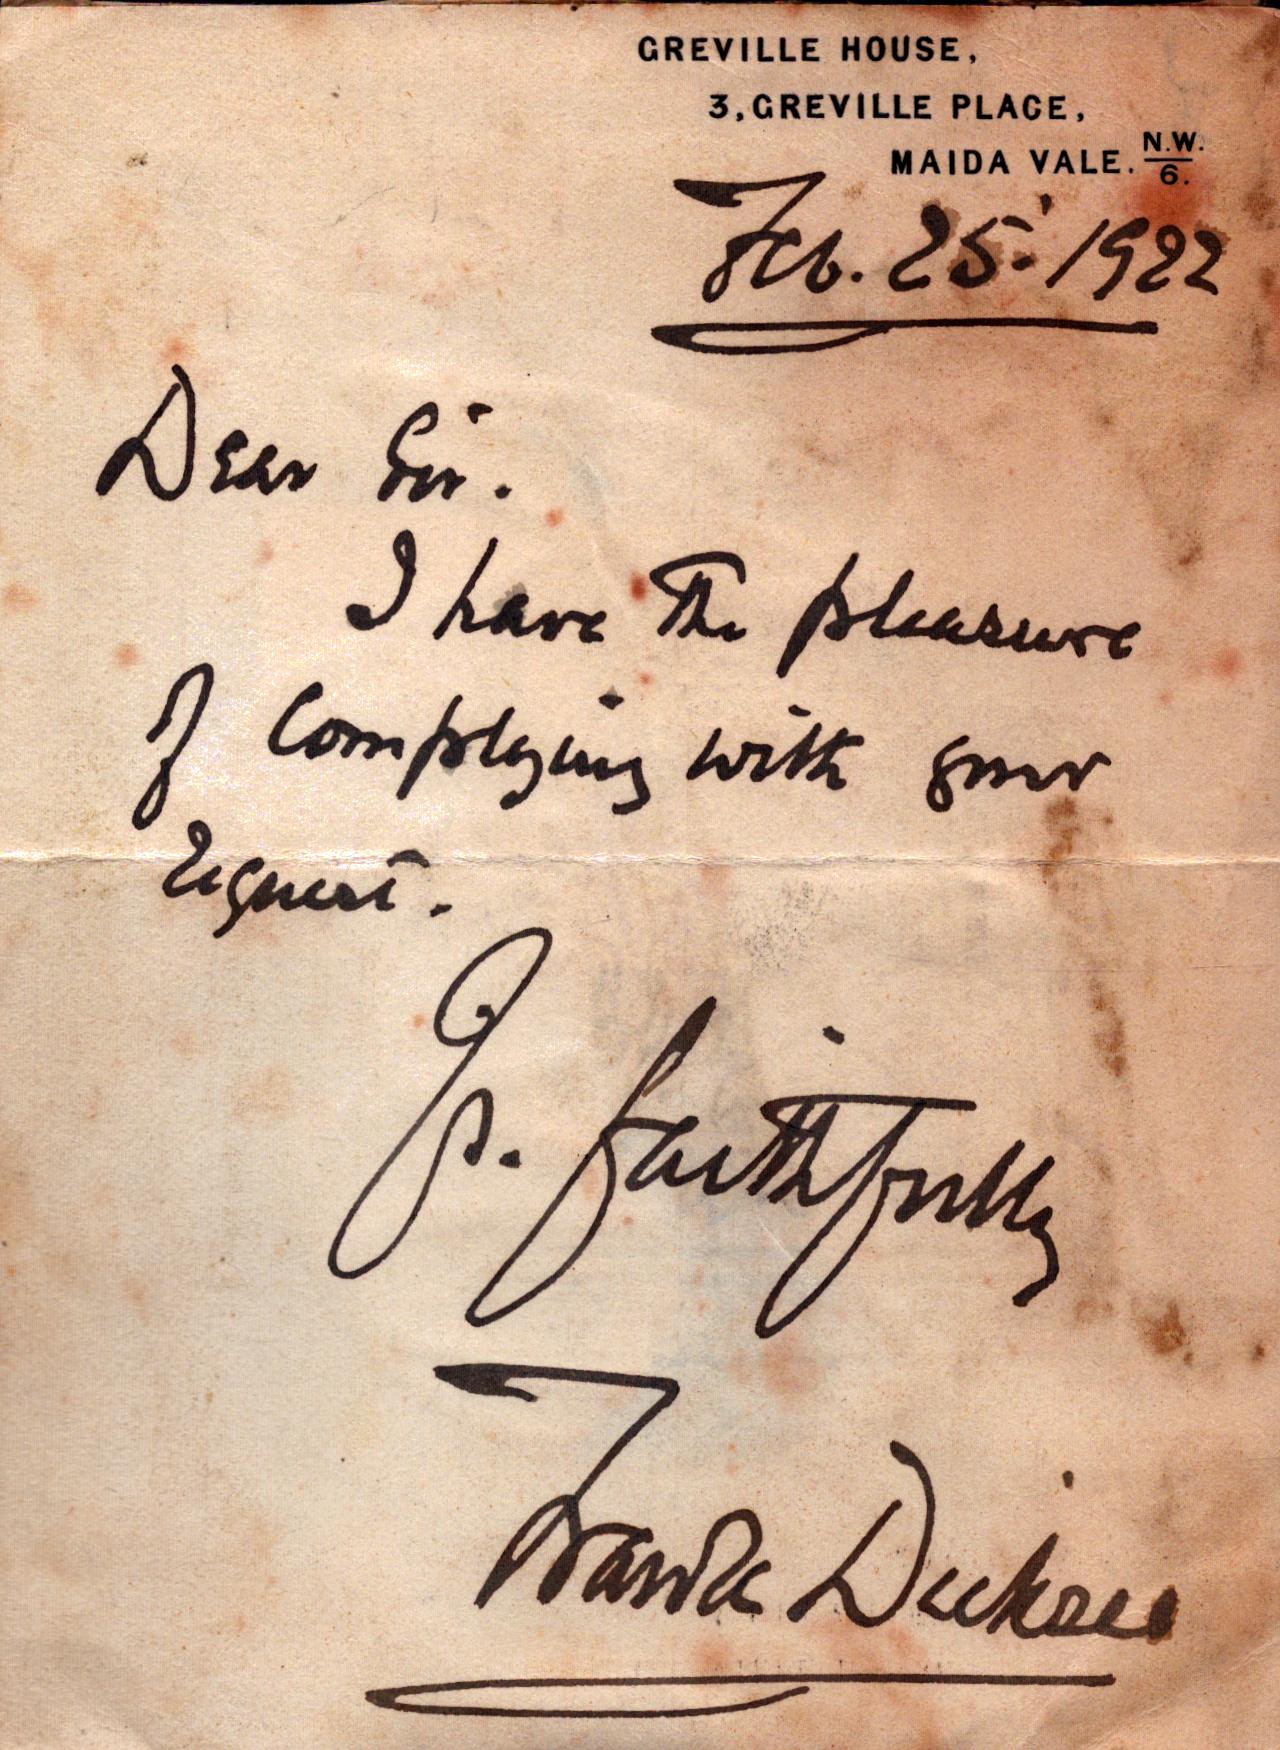 GREVILLE HOUSE,
3, GREVILLE PLACE,
MAIDA VALE. N.W. 6.
Feb. 25. 1922
Dear Sir.
I have the pleasure
of complying with your
request.
Yrs. faithfully
Frank Dicksee